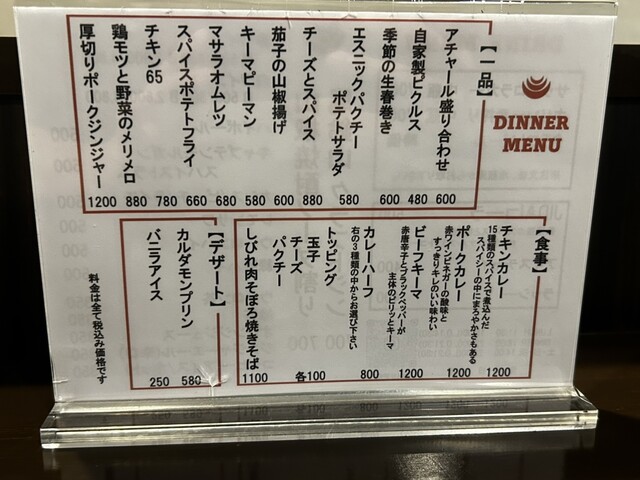 DINNER
MENU
【一品】
アチャール盛り合わせ 600
自家製ピクルス 480
季節の生春巻き 600
エスニックパクチー
ポテトサラダ 580
チーズとスパイス 880
茄子の山椒揚げ 600
キーマピーマン 580
マサラオムレツ 680
スパイスポテトフライ 660
チキン65 780
鶏モツと野菜のメリメロ 880
厚切りポークジンジャー 1200
【食事】
チキンカレー 1200
15種類のスパイスで煮込んだ
スパイシーの中にまろやかさもある
ポークカレー 1200
赤ワインビネガーの酸味と
すっきりキレのいい味わい
ビーフキーマ 1200
赤唐辛子とブラックペッパーが
主体のピリッとキーマ
カレーハーフ 800
右の3種類の中からお選び下さい
トッピング
玉子
チーズ
パクチー
各100
しびれ肉そぼろ焼きそば 1100
【デザート】
カルダモンプリン 580
バニラアイス 250
料金は全て税込み価格です